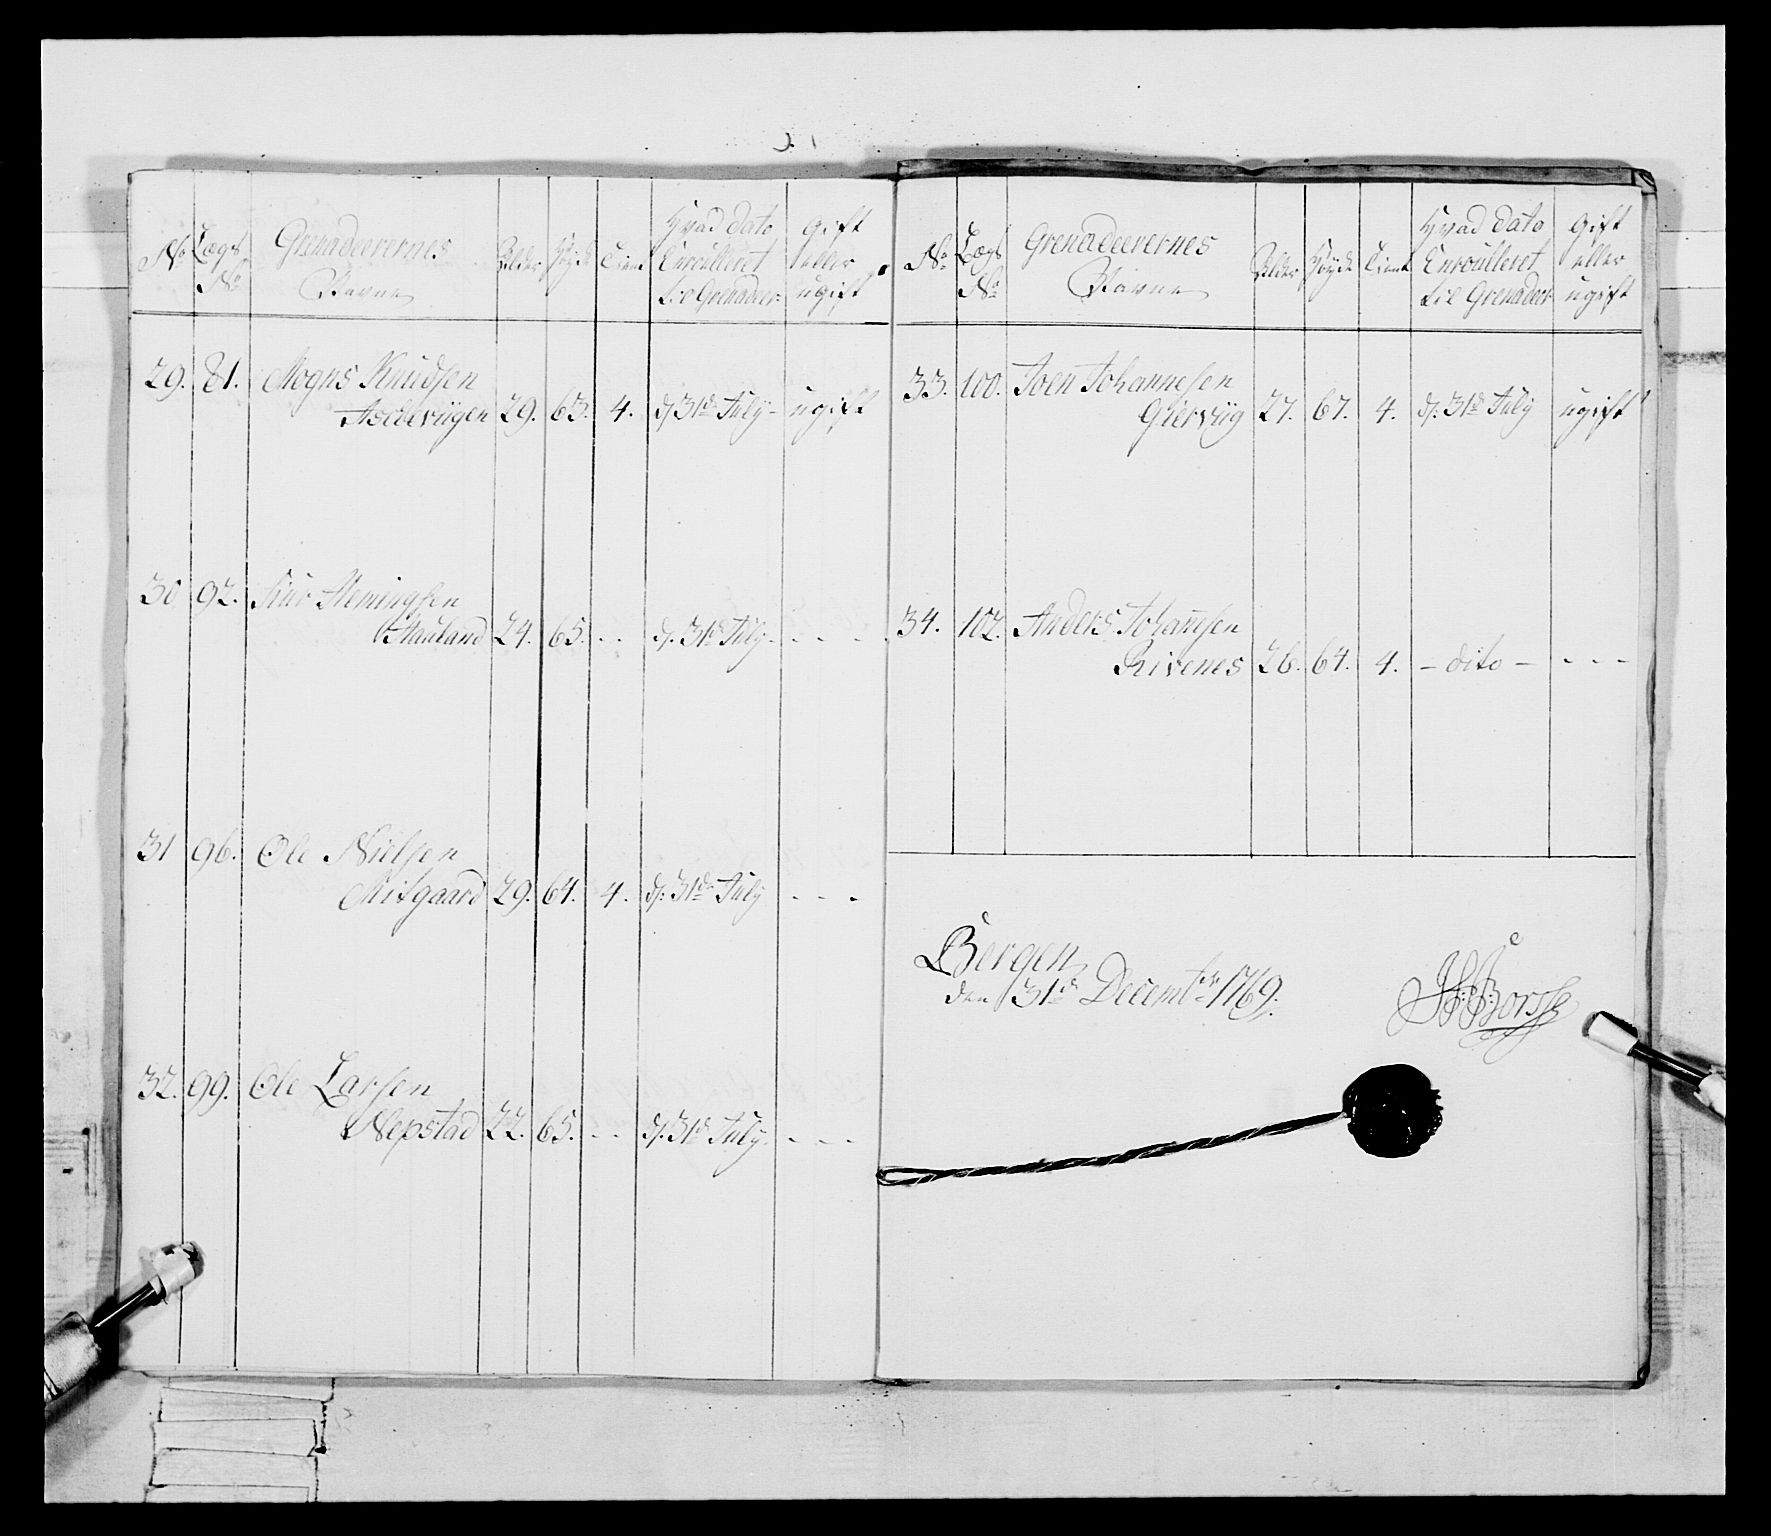 No Lægs No Grenadeerernes Navne Alder Høyde Tient Hvad dato Enroulleret til Grenadeer gift eller ugift
29. 81. Mogns Knudsen
29. 63. 4. d. 31de July - ugift
30 92. Siur Hemingsen
Aauland 24. 65. - - d. 31de July - - - -
31 96. Ole Nielsen
Mitgaard 29. 64. 4. d. 31de July - - -
32. 99. Ole Larsen
Nepstad 22. 65. - - d. 31de July - - - -
No Lægs No Grenadeerernes Navne Alder Høyde Tient Hvad dato Enroulleret til Grenadeer gift eller ugift
33. 100. Joen Johannesen
Giervüg 27. 67. 4. d. 31de July ugift
34. 102. Anders Johannesen
Rivenes 26. 64. 4. - dito - - - -
Bergen
den 31de Decembr 1769.